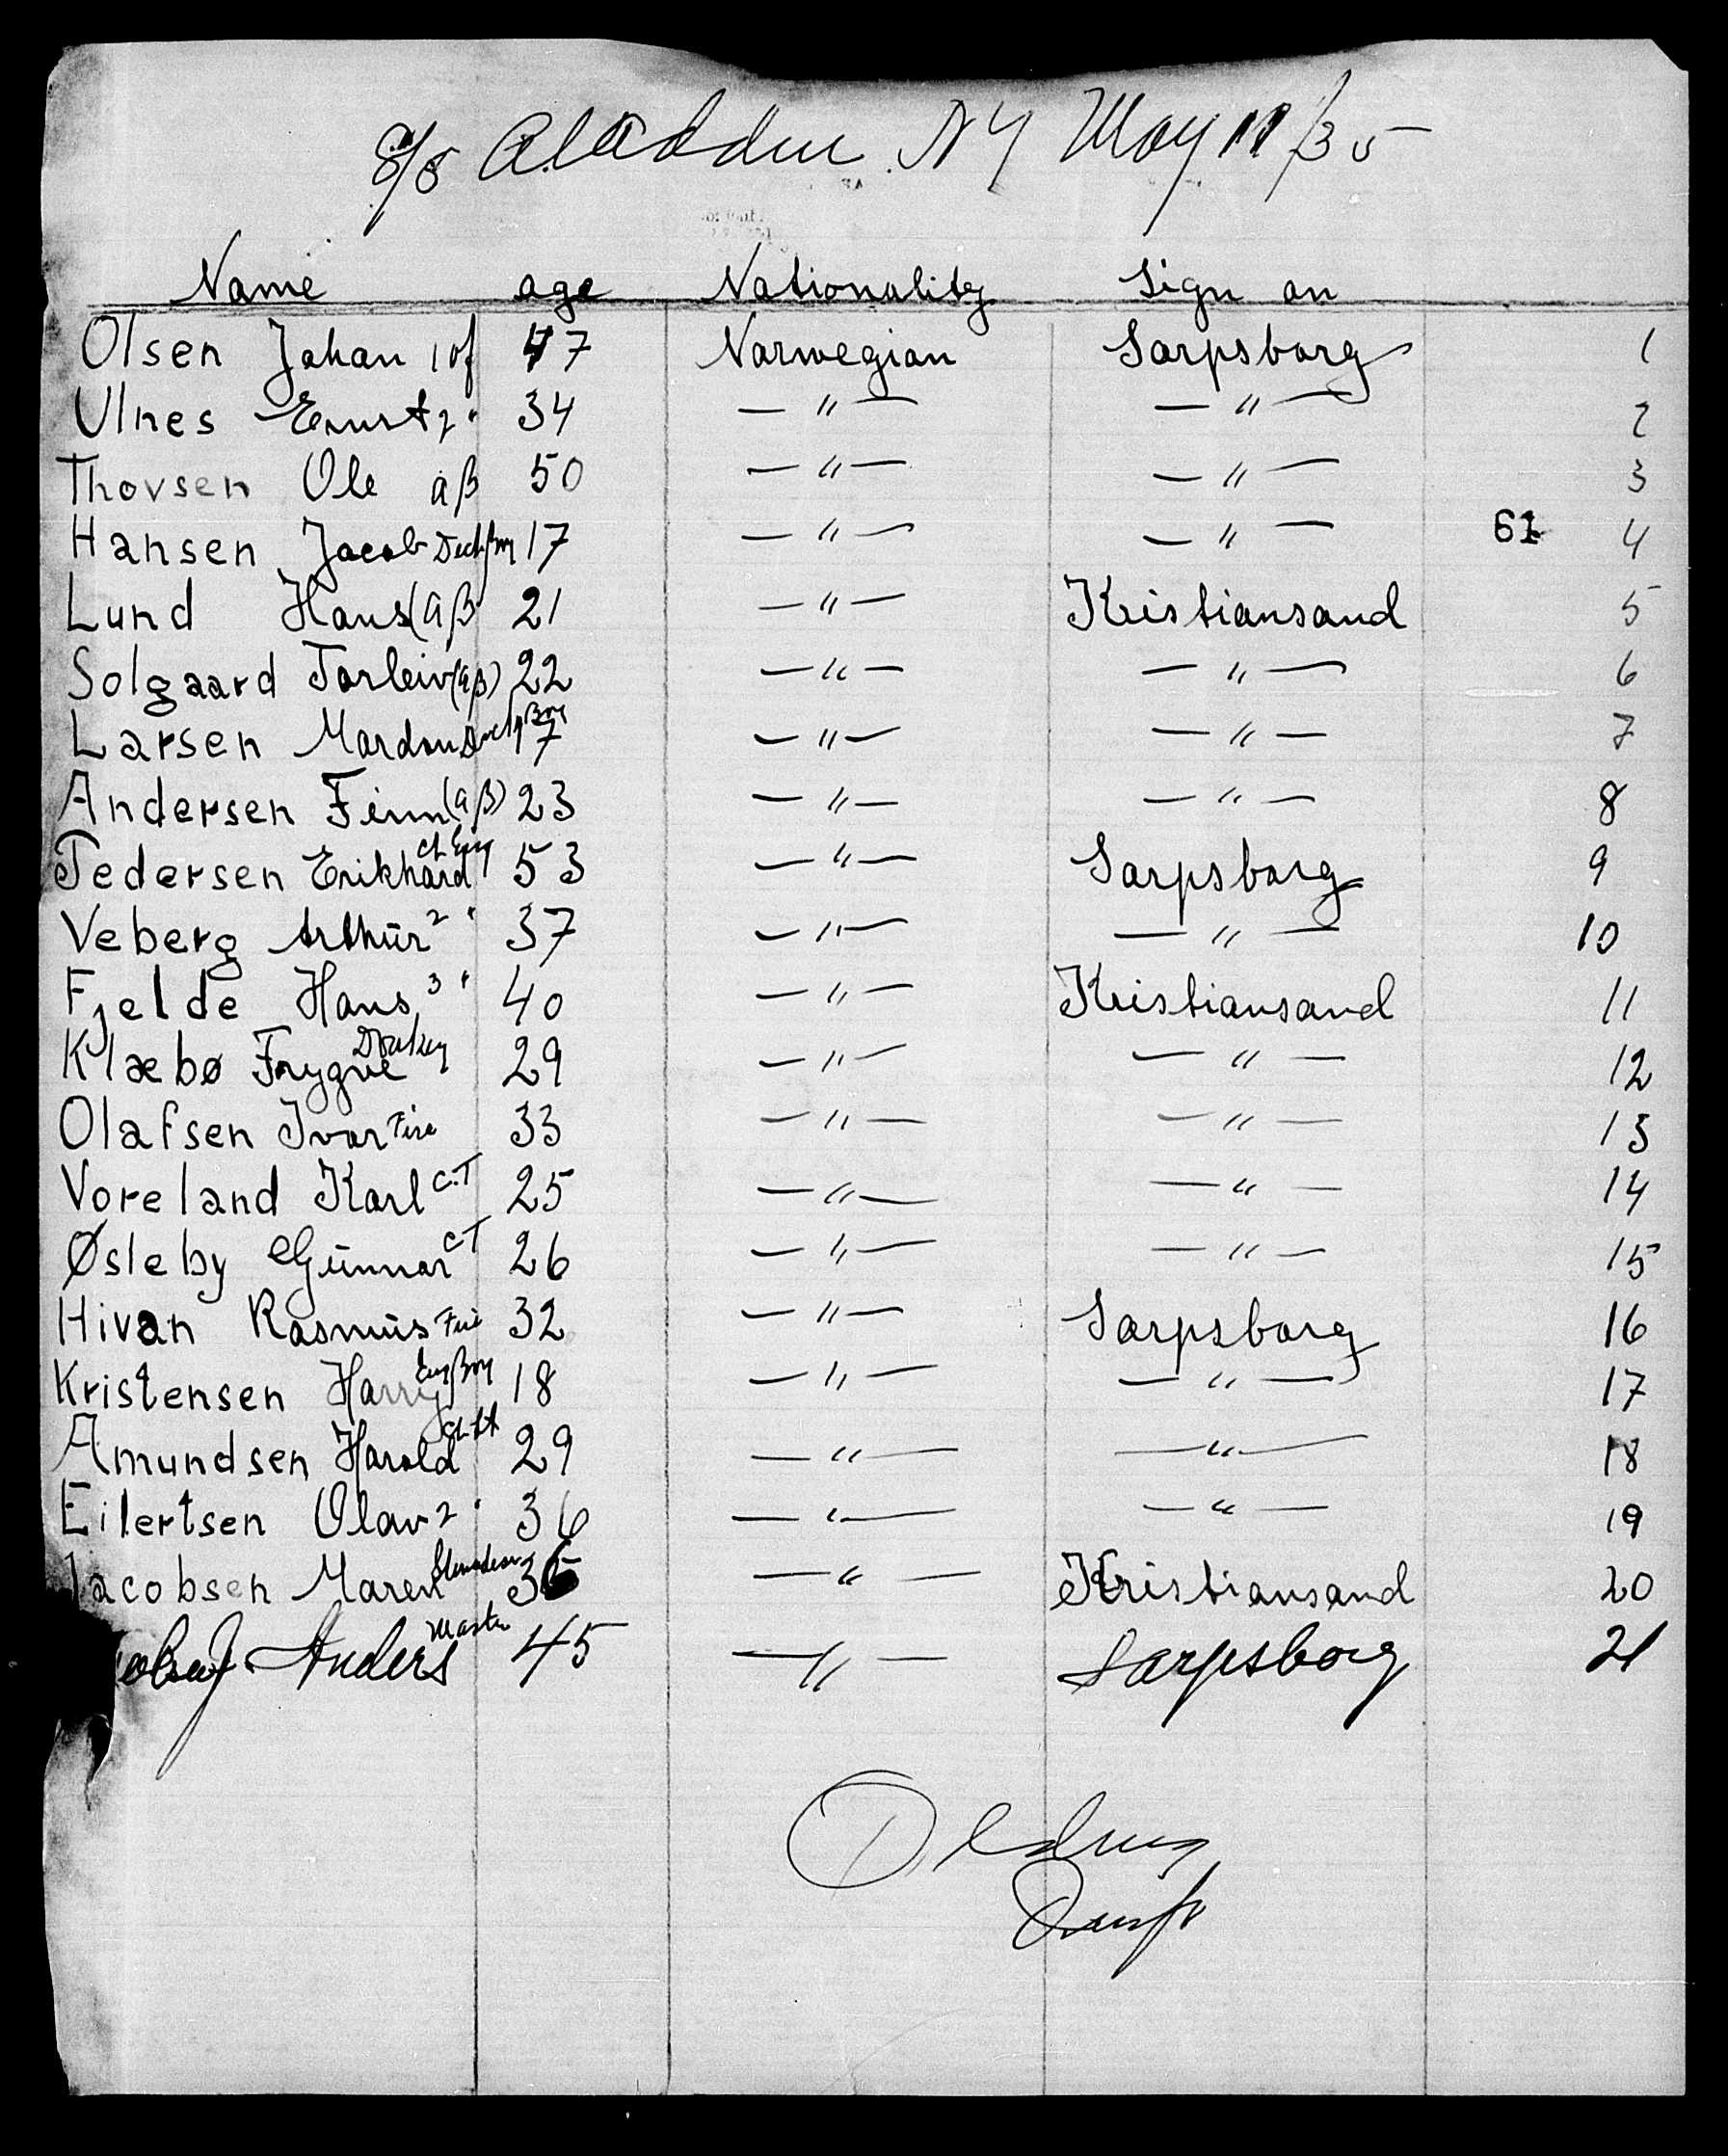 S/S Aladdin N Y May 11/35
Name age Nationality Sign on
Olsen Johan 1 of 47 Norwegian Sarpsborg 1
Ulnes Ernst 2 " 34 — " — — " — 2
Thovsen Ole AB 50 — " — — " — 3
Hansen Jacob Deck Boy 17 — " — — " — 61 4
Lund Hans (AB 21 — " — Kristiansand 5
Solgaard Torleiv (AB) 22 — " — — " — 6
Larsen Mardon Deck Boy 17 — " — — " — 7
Andersen Finn (AB) 23 — " — — " — 8
Pedersen Erikhard Ch Eng 53 — " — Sarpsborg 9
Veberg Arthur 2 " 37 — " — — " — 10
Fjelde Hans 3 " 40 — " — Kristiansand 11
Klæbø Trygve Donkey 29 — " — — " — 12
Olafsen Ivar Fire 33 — " — — " — 13
Voreland Karl C.T 25 — " — — " — 14
Øsleby Gunnar C.T 26 — " — — " — 15
Hivan Rasmus Fire 32 — " — Sarpsborg 16
Kristensen Harry Eng Boy 18 — " — — " — 17
Amundsen Harald Ch St 29 — " — — " — 18
Eilertsen Olav 2 " 36 — " — — " — 19
Jacobsen Maren Stewardess 36 — " — Kristiansand 20
Anders Master 45 — " — Sarpsborg 21